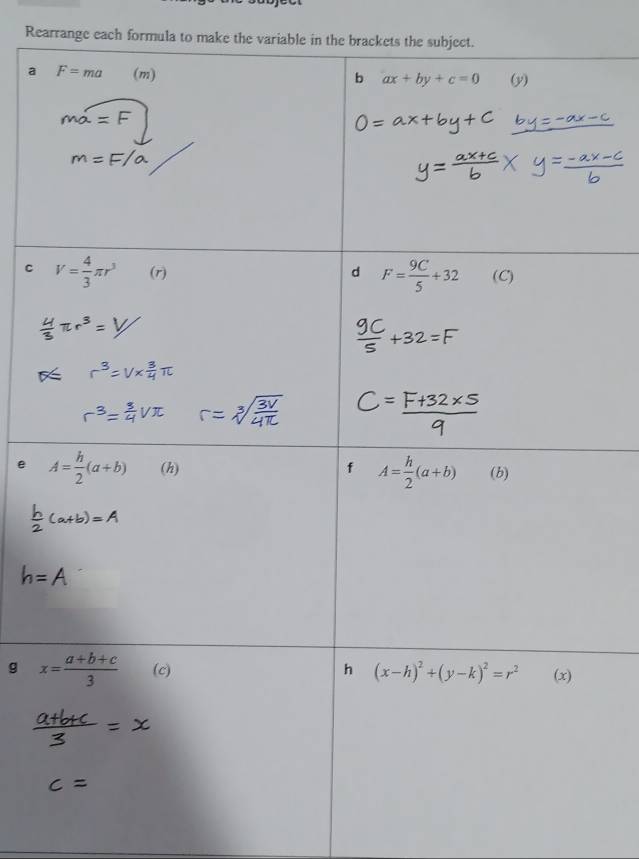 Rearrange each formula to make the variable in the brackets the subject.
a F = ma (m)
ma = F
m = F/a
b ax + by + c = 0 (y)
0 = ax + by + c by = -ax - c
y = \frac{ax+c}{b} × y = \frac{-ax-c}{b}
c V = \frac{4}{3}πr³ (r)
\frac{4}{3}πr³ = V
r³ = V × \frac{3}{4}π
r³ = \frac{3}{4}Vπ r = ∛\frac{3V}{4π}
d F = \frac{9C}{5} + 32 (C)
\frac{9C}{5} + 32 = F
C = \frac{F+32×5}{9}
e A = \frac{h}{2}(a+b) (h)
\frac{h}{2}(a+b) = A
h = A
f A = \frac{h}{2}(a+b) (b)
g x = \frac{a+b+c}{3} (c)
\frac{a+b+c}{3} = x
c =
h (x-h)² + (y-k)² = r² (x)